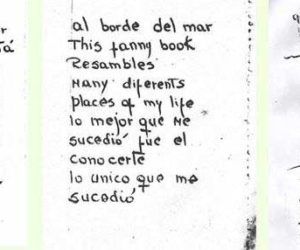 al borde del mar
This fanny book
Resambles
Many diferents
places of my life
lo mejor que Me
sucedió fue el
conocerte
lo unico que me
sucedió